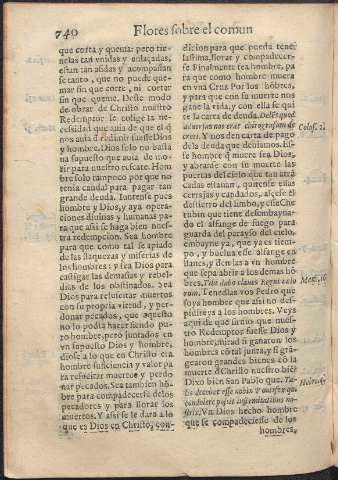 740 Flores sobre el comun
que corta y quema: pero tie-
nelas tan vnidas y enlaçadas,
estan tan asidas y acompañan
se tanto, que no puede que-
mar sin que corte, ni cortar
sin que queme. Deste modo
de obrar de Christo nuestro
Redemptor se colige la ne-
cessidad que auia de que el q̃
nos auia d̃ redimir fuesse Dios
y hombre. Dios solo no basta
ua supuesto que auia de mo-
rir para nuestro rescate. Hom
bre solo tampoco por que no
tenia caudal para pagar tan
grande deuda. Iuntense pues
hombre y Dios, y aya opera-
ciones diuinas y humanas pa-
ra que assi se haga bien nues-
tra redempcion. Sea hombre
para que como tal se apiade
de las flaquezas y miserias de
los hombres: y sea Dios para
castigar las demasias y rebel-
dias de los obstinados. Sea
Dios para resuscitar muertos
con su propria virtud, y per-
donar pecados, que aquesto
no lo podia hazer siendo pu-
ro hombre, pero juntados en
vn supuesto Dios y hombre,
diose a lo que en Christo era
hombre suficiencia y valor pa
ra resucitar muertos y perdo-
nar pecados. Sea tambien hõ-
bre para compadecerse de los
pecadores y para llorar los
muertos. Y assi se le dara a lo
que es Dios en Christo, con-
dicion para que pueda tener
lastima, llorar y compadecer-
se. Finalmente sea hombre, pa
ra que como hombre muera
en vna Cruz por los hõbres,
y para que con su muerte nos
gane la vida, y con ella se qui
te la carta de deuda. Delēs quod
aduersus nos erat chirographum de
cruz. Y nos den carta de pago
de la deuda que deuiamos. Es-
se hombre q̃ muere sea Dios,
y abranse con su muerte las
puertas del cielo que tan atrã
cadas estauan, quiense essas
cerrajas y candados, alçese el
destierro del limbo, y esse Che
rubin que tiene desembayna-
do el alfange de fuego para
guarda del parayso del cielo,
embayne ya, que ya es tiem-
po, y buelua esse alfange en
llaues, y den las a vn hombre
que sepa abrir a los demas hõ
bres. Tibi dabo claues Regni cælo
rum. Tenedlas vos Pedro que
soys hombre que assi no des-
pidireys a los hombres. Veys
aqui de que siruio que nues-
tro Redemptor fuesse Dios y
hombre, mirad si ganaron los
hombres cõ tal junta, y si grã-
gearon grandes bienes cõ la
muerte d̃ Christo nuestro biẽ
Dixo bien San Pablo que. Ta-
lis decebat esse nobis Pontifex qui
condolere posset infirmitatibus no-
stris. Vn Dios hecho hombre
que se compadeciesse de los
hombres,
Colos. 2.
Mat. 16.
Hebr. 4.